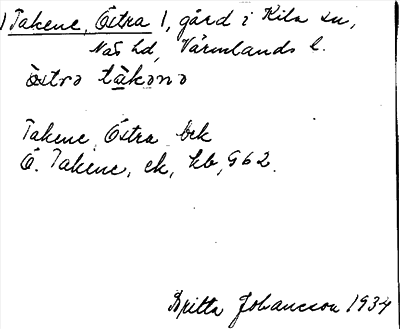 Takene, Östra 1, gård i Kila sn,
Näs hd, Värmlands l.
östrə tàkənə
Takene, Östra bek
Ö. Takene, ek, kb, 962.
Britta Johansson 1934